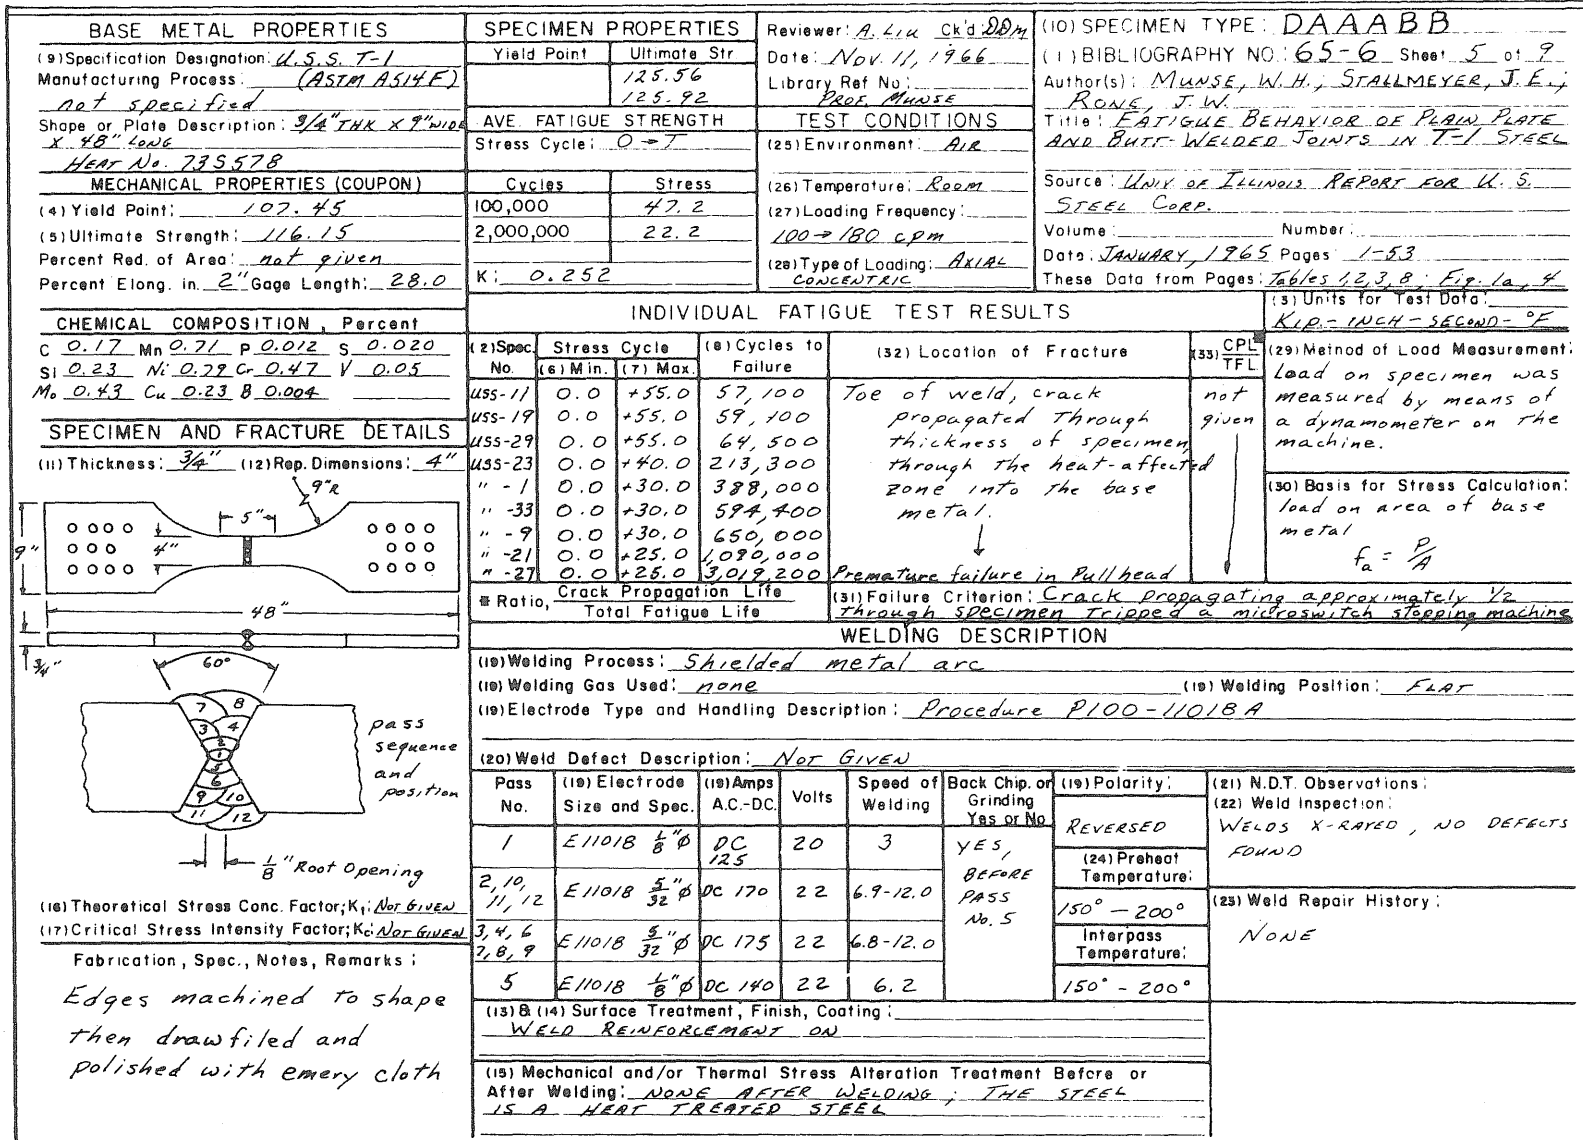 BASE METAL PROPERTIES
(9) Specification Designation: U.S.S. T-1
Manufacturing Process: (ASTM A514F)
not specified
Shape or Plate Description: 3/4" THK X 9" WIDE
X 48" LONG
HEAT No. 73S578
MECHANICAL PROPERTIES (COUPON)
(4) Yield Point: 107.45
(5) Ultimate Strength: 116.15
Percent Red. of Area: not given
Percent Elong. in 2" Gage Length: 28.0
CHEMICAL COMPOSITION, Percent
C 0.17 Mn 0.71 P 0.012 S 0.020
Si 0.23 Ni 0.79 Cr 0.47 V 0.05
Mo 0.43 Cu 0.23 B 0.004
SPECIMEN AND FRACTURE DETAILS
(11) Thickness: 3/4" (12) Rep. Dimensions: 4"
9"R
5"
4"
9"
48"
3/4"
60°
7 8
3 4
2
1
5
6
9 10
11 12
pass
sequence
and
position
1/8" Root Opening
(16) Theoretical Stress Conc. Factor; Kt: NOT GIVEN
(17) Critical Stress Intensity Factor; Kc: NOT GIVEN
Fabrication, Spec., Notes, Remarks:
Edges machined to shape
then drawfiled and
polished with emery cloth
SPECIMEN PROPERTIES
Yield Point Ultimate Str
125.56
125.92
AVE. FATIGUE STRENGTH
Stress Cycle: O→T
Cycles Stress
100,000 47.2
2,000,000 22.2
K: 0.252
Reviewer: A. Liu Ck'd: DDM
Date: Nov. 11, 1966
Library Ref No:
PROF. MUNSE
TEST CONDITIONS
(25) Environment: AIR
(26) Temperature: ROOM
(27) Loading Frequency:
100→180 cpm
(28) Type of Loading: AXIAL
CONCENTRIC
(10) SPECIMEN TYPE: DAAABB
(1) BIBLIOGRAPHY NO: 65-6 Sheet 5 of 9
Author(s): MUNSE, W.H.; STALLMEYER, J.E.;
RONE, J.W.
Title: FATIGUE BEHAVIOR OF PLAIN PLATE
AND BUTT-WELDED JOINTS IN T-1 STEEL
Source: UNIV OF ILLINOIS REPORT FOR U.S.
STEEL CORP.
Volume: Number:
Date: JANUARY, 1965 Pages 1-53
These Data from Pages: Tables 1,2,3,8; Fig. 1a, 4
INDIVIDUAL FATIGUE TEST RESULTS
(3) Units for Test Data:
KIP-INCH-SECOND-°F
(2) Spec. No. Stress Cycle (6) Min. (7) Max. (8) Cycles to Failure (32) Location of Fracture (33) CPL/TFL
USS-11 0.0 +55.0 57,100 Toe of weld, crack not
USS-19 0.0 +55.0 59,100 propagated through given
USS-29 0.0 +55.0 64,500 thickness of specimen,
USS-23 0.0 +40.0 213,300 through the heat-affected
" -1 0.0 +30.0 388,000 zone into the base
" -33 0.0 +30.0 594,400 metal.
" -9 0.0 +30.0 650,000
" -21 0.0 +25.0 1,090,000
" -27 0.0 +25.0 3,019,200 Premature failure in Pullhead
(29) Method of Load Measurement:
Load on specimen was
measured by means of
a dynamometer on the
machine.
(30) Basis for Stress Calculation:
load on area of base
metal
fa = P/A
* Ratio, Crack Propagation Life / Total Fatigue Life
(31) Failure Criterion: Crack propagating approximately 1/2
through specimen tripped a microswitch stopping machine
WELDING DESCRIPTION
(19) Welding Process: Shielded metal arc
(19) Welding Gas Used: none (19) Welding Position: FLAT
(19) Electrode Type and Handling Description: Procedure P100-11018A
(20) Weld Defect Description: NOT GIVEN
Pass No. (19) Electrode Size and Spec. (19) Amps A.C.-D.C. Volts Speed of Welding Back Chip. or Grinding Yes or No
1 E11018 1/8"φ DC 125 20 3 YES,
BEFORE
PASS
No. 5
2, 10, 11, 12 E11018 5/32"φ DC 170 22 6.9-12.0
3, 4, 6 7, 8, 9 E11018 5/32"φ DC 175 22 6.8-12.0
5 E11018 1/8"φ DC 140 22 6.2
(19) Polarity:
REVERSED
(24) Preheat
Temperature:
150° - 200°
Interpass
Temperature:
150° - 200°
(21) N.D.T. Observations:
(22) Weld Inspection:
WELDS X-RAYED, NO DEFECTS
FOUND
(23) Weld Repair History:
NONE
(13) & (14) Surface Treatment, Finish, Coating:
WELD REINFORCEMENT ON
(15) Mechanical and/or Thermal Stress Alteration Treatment Before or
After Welding: NONE AFTER WELDING; THE STEEL
IS A HEAT TREATED STEEL